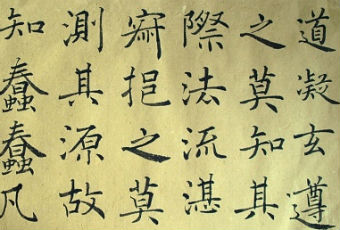 道凝玄遵
之莫知其
際法流湛
寂挹之莫
測其源故
知蠢蠢凡